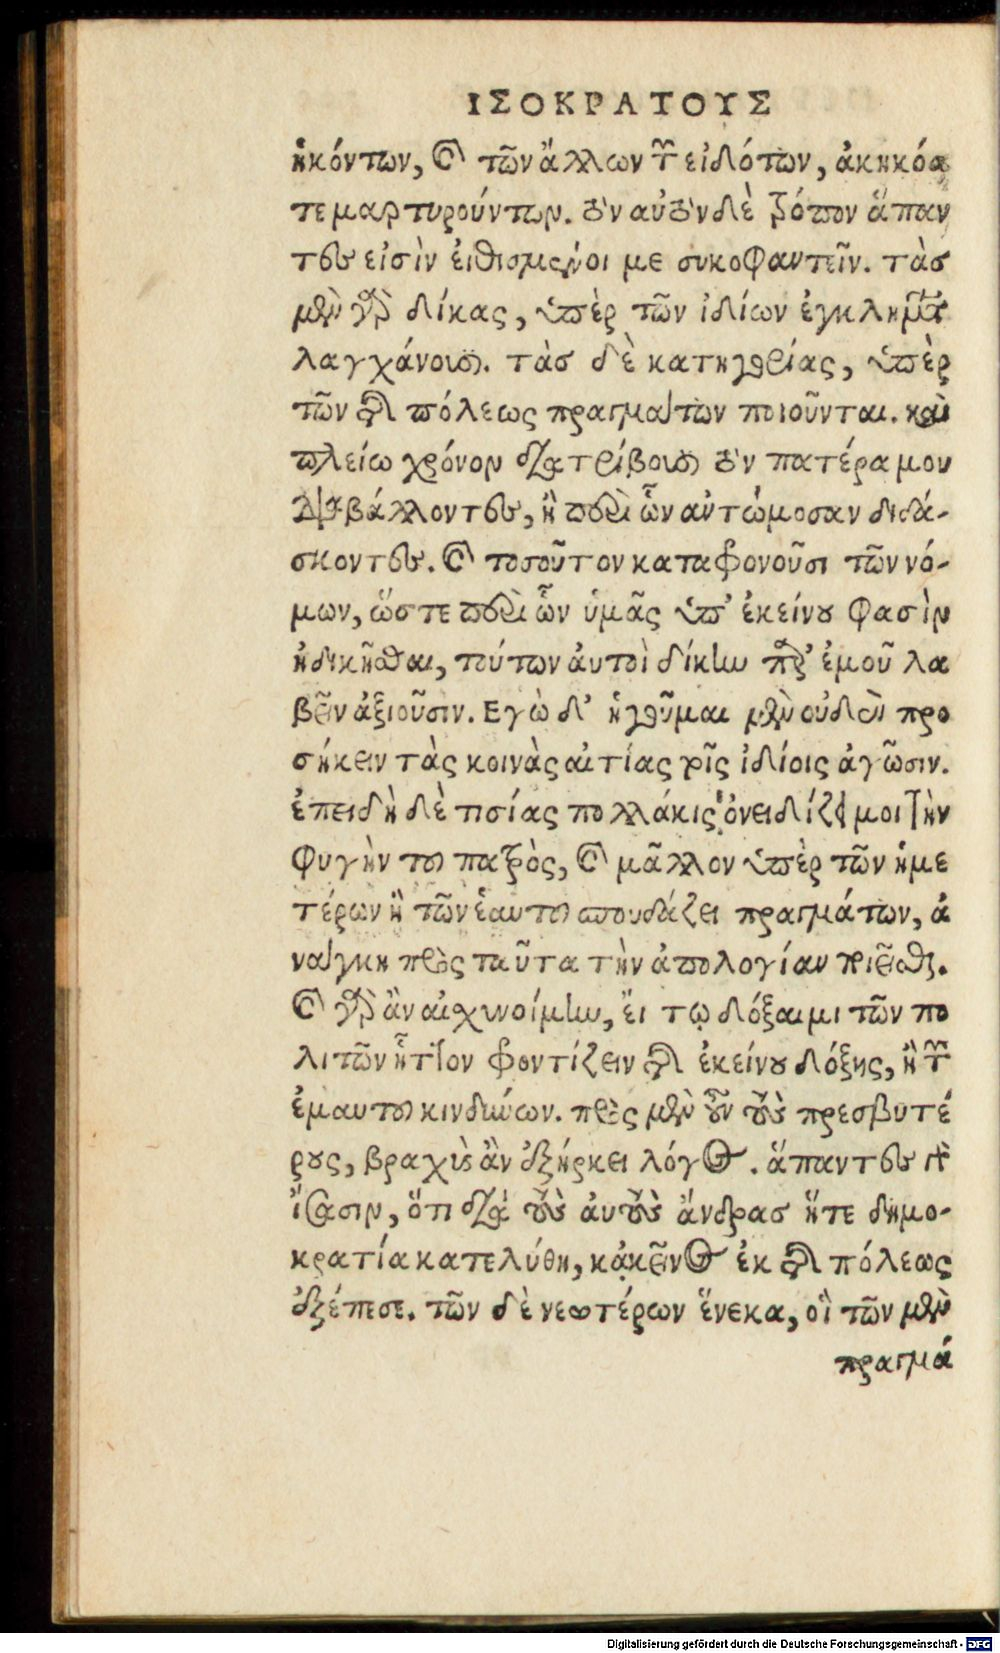 ΙΣΟΚΡΑΤΟΥΣ
ἡκόντων, καὶ τῶν ἄλλων τῶν εἰδότων, ἀκηκόα
τε μαρτυρούντων. τὸν αὐτὸν δὲ τρόπον ἅπαν
τες εἰσὶν εἰθισμένοι με συκοφαντεῖν. τὰσ
μὲν γὰρ δίκας, ὑπὲρ τῶν ἰδίων ἐγκλημάτων
λαγχάνουσι. τὰσ δὲ κατηγορίας, ὑπὲρ
τῶν τῆς πόλεως πραγμάτων ποιοῦνται. καὶ
πλείω χρόνον διατρίβουσι τὸν πατέρα μου
διαβάλλοντες, ἢ περὶ ὧν ἀντώμοσαν διδά-
σκοντες. καὶ τοσοῦτον καταφρονοῦσι τῶν νό-
μων, ὥστε περὶ ὧν ὑμᾶς ὑπ' ἐκείνου φασὶν
ἠδικῆσθαι, τούτων αὐτοὶ δίκην παρ' ἐμοῦ λα
βεῖν ἀξιοῦσιν. Εγὼ δ' ἡγοῦμαι μὲν οὐδὲν προ
σήκειν τὰς κοινὰς αἰτίας τοῖς ἰδίοις ἀγῶσιν.
ἐπειδὴ δὲ τισίας πολλάκις ὀνειδίζει μοι τὴν
φυγὴν του πατρὸς, καὶ μᾶλλον ὑπὲρ τῶν ἡμε
τέρων ἢ τῶν ἑαυτου σπουδάζει πραγμάτων, ἀ
νάγκη πρὸς ταῦτα τὴν ἀπολογίαν ποιεῖσθαι.
καὶ γὰρ ἂν αἰσχυνοίμην, εἴ τῳ δόξαιμι τῶν πο
λιτῶν ἧττον φροντίζειν τῆς ἐκείνου δόξης, ἢ τῶν
ἐμαυτου κινδύνων. πρὸς μὲν οὖν τοὺς πρεσβυτέ
ρους, βραχὺς ἂν ἐξήρκει λόγος. ἅπαντες γὰρ
ἴσασιν, ὅτι διὰ τοὺς αὐτοὺς ἄνδρασ ἥτε δημο-
κρατία κατελύθη, κἀκεῖνος ἐκ τῆς πόλεως
ἐξέπεσε. τῶν δὲ νεωτέρων ἕνεκα, οἳ τῶν μὲν
πραγμά
Digitalisierung gefördert durch die Deutsche Forschungsgemeinschaft - DFG